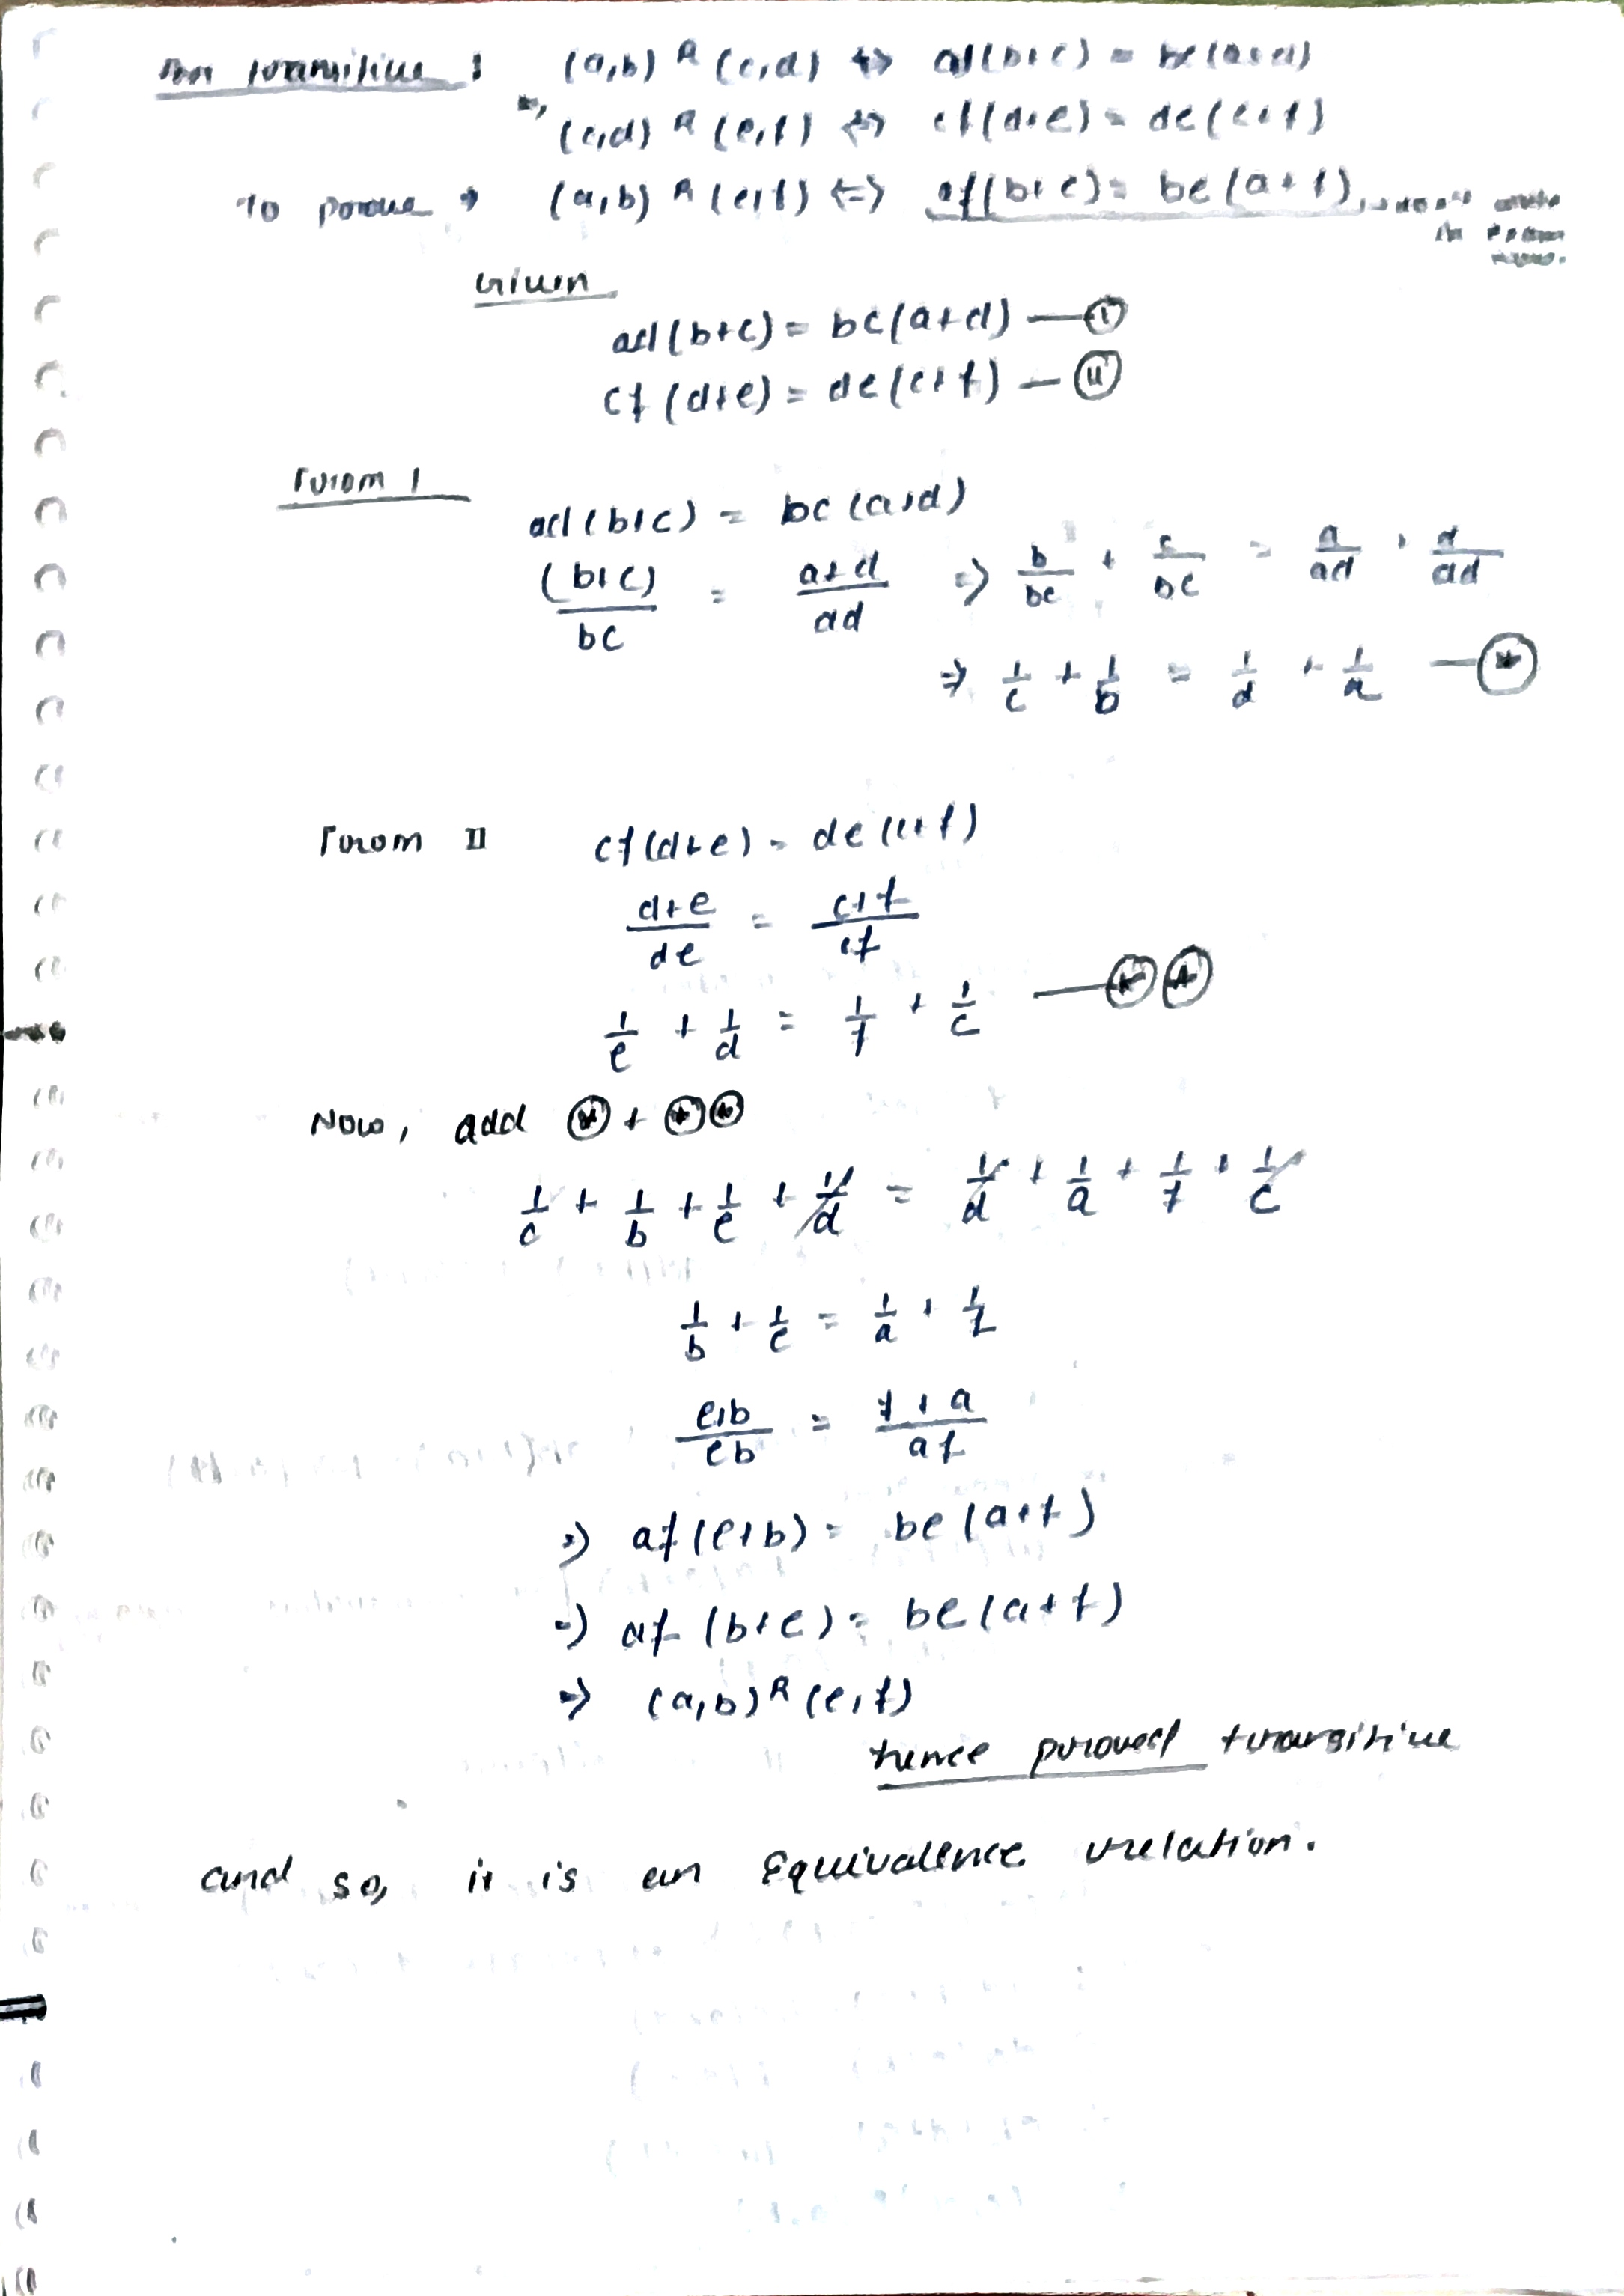 For transitive : (a,b) R (c,d) ⇔ ad(b+c) = bc(a+d)
(c,d) R (e,f) ⇔ cf(d+e) = de(c+f)
To prove → (a,b) R (e,f) ⇔ af(b+e) = be(a+f) don't write in exam
Given
ad(b+c) = bc(a+d) — I
cf(d+e) = de(c+f) — II
From I
ad(b+c) = bc(a+d)
(b+c)/bc = a+d/ad ⇒ b/bc + c/bc = a/ad + d/ad
⇒ 1/c + 1/b = 1/d + 1/a — *
From II cf(d+e) = de(c+f)
d+e/de = c+f/cf
1/e + 1/d = 1/f + 1/c — * *
Now, add * + * *
1/c + 1/b + 1/e + 1/d = 1/d + 1/a + 1/f + 1/c
1/b + 1/e = 1/a + 1/f
e+b/eb = f+a/af
⇒ af(e+b) = be(a+f)
⇒ af(b+e) = be(a+f)
⇒ (a,b) R (e,f)
hence proved transitive
and so, it is an Equivalence relation.